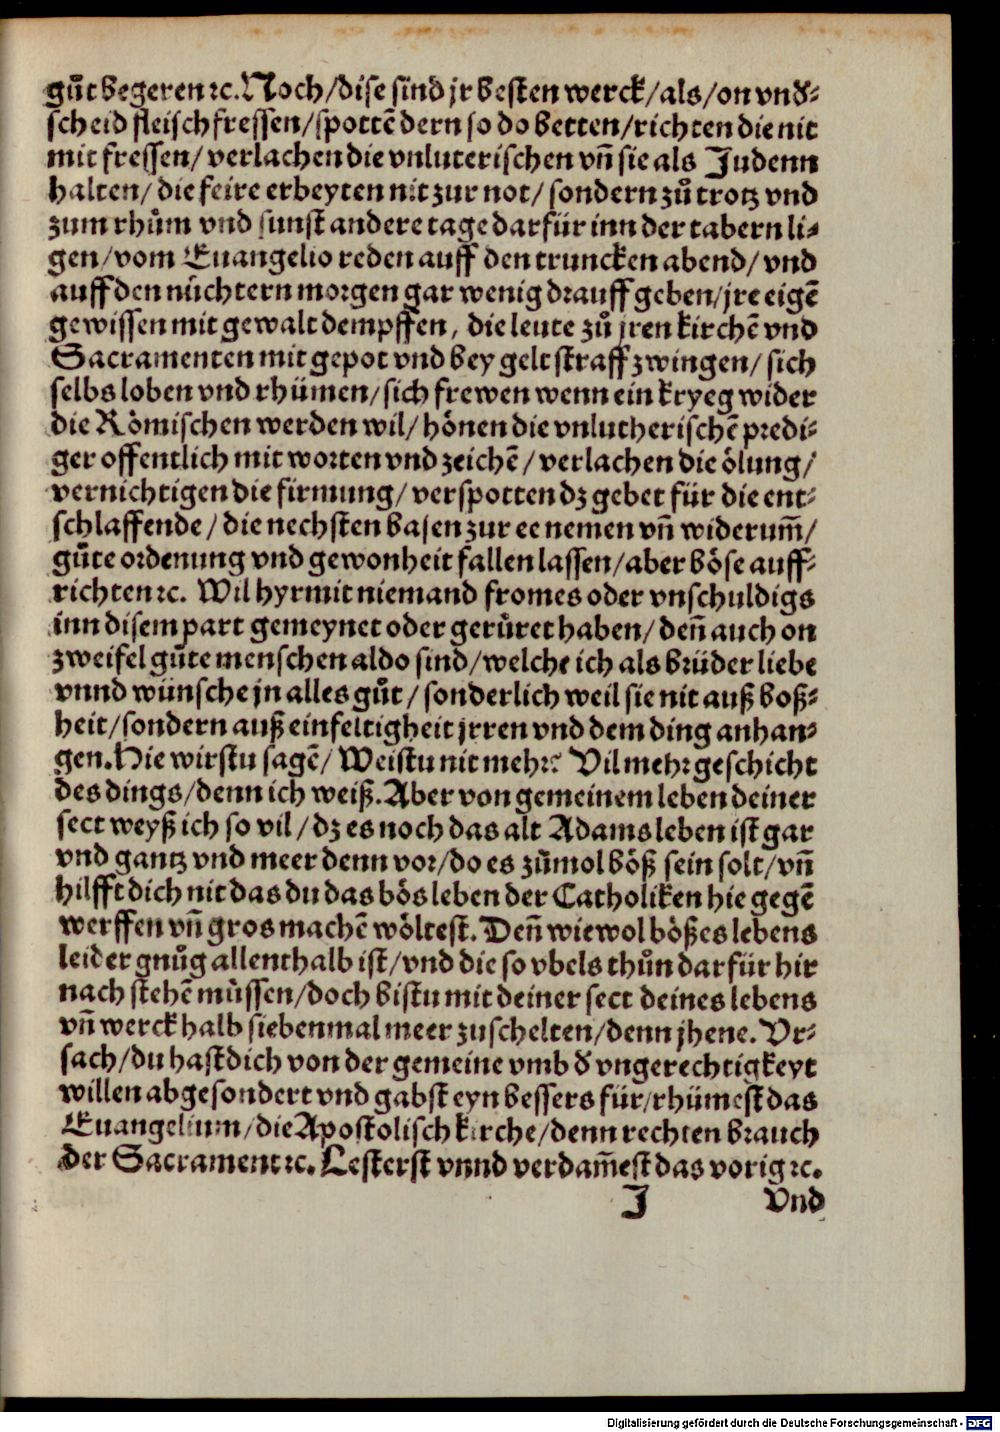 gůt begeren ꝛc. Noch/dise sind jr besten werck/als/on vnd̕⸗
scheid fleisch fressen/spottē dern so do betten/richten die nit
mit fressen/ verlachen die vnluterischen vñ sie als Judenn
halten/ die feire erbeyten nit zur not/ sondern zů trotz vnd
zum rhům vnd sunst andere tage darfür inn der tabern li⸗
gen/vom Euangelio reden auff den truncken abend/ vnd
auff den nůchtern morgen gar wenig drauff geben/jre eigē
gewissen mit gewalt dempffen, die leute zů jren kirchē vnd
Sacramenten mit gepot vnd bey gelt straff zwingen/ sich
selbs loben vnd rhümen/sich frewen wenn ein kryeg wider
die Römischen werden wil/ hönen die vnlutherischē predi⸗
ger offentlich mit worten vnd zeichē/ verlachen die ölung/
vernichtigen die firmung/ verspotten dz gebet für die ent⸗
schlaffende/die nechsten basen zur ee nemen vñ widerum̄/
gůte ordenung vnd gewonheit fallen lassen/aber böse auff⸗
richten ꝛc. Wil hyrmit niemand fromes oder vnschuldigs
inn disem part gemeynet oder gerůret haben/ deñ auch on
zweifel gůte menschen aldo sind/welche ich als brüder liebe
vnnd wünsche jn alles gůt/ sonderlich weil sie nit auß boß⸗
heit/sondern auß einfeltigheit jrren vnd dem ding anhan⸗
gen. Hie wirstu sagē/ Weistu nit mehr? Vil mehr geschicht
des dings/denn ich weiß. Aber von gemeinem leben deiner
sect weyß ich so vil/dz es noch das alt Adams leben ist gar
vnd gantz vnd meer denn vor/do es zůmol böß sein solt/vñ
hilfft dich nit das du das bös leben der Catholiken hie gegē
werffen vñ gros machē wöltest. Deñ wiewol bößes lebens
leider gnůg allenthalb ist/vnd die so vbels thůn darfür hir
nach stehē můssen/doch bistu mit deiner sect deines lebens
vñ werck halb siebenmal meer zu schelten/denn jhene. Vr⸗
sach/du hast dich von der gemeine vmb d̕ vngerechtigkeyt
willen abgesondert vnd gabst eyn bessers für/rhümest das
Euangelium/die Apostolisch kirche/denn rechten brauch
der Sacrament ꝛc. Lesterst vnnd verdam̄est das vorig ꝛc.
J Vnd
Digitalisierung gefördert durch die Deutsche Forschungsgemeinschaft - DFG